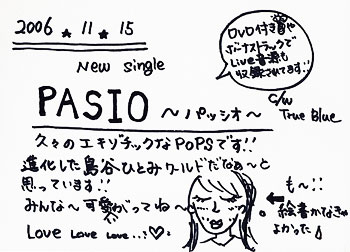 2006 ★ 11 ★ 15
New Single
DVD付き
ボーナストラックで
Live音源も
収録されてます!!
PASIO ～パッシオ～
c/w
True Blue
久々のエキゾチックなPOPSです!!
進化した島谷ひとみワールドだなぁ～と
思っています!!
みんな～可愛がってね～
Love Love Love...♡
も～!!
絵書かなきゃ
よかった